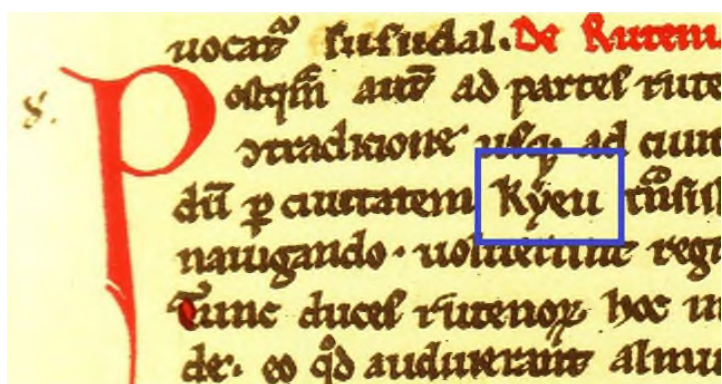 uocat᷑ susudal. De Rutem
8. Postqm̄ aut̄ ad partes rute
ɔtradicione usq; ad ciui
dū ꝑ ciuitatem Kÿeu
nauigando. uoluerunt regn
Tunc duces rutenoꝝ hoc
de. eo qd̊ audierant almu